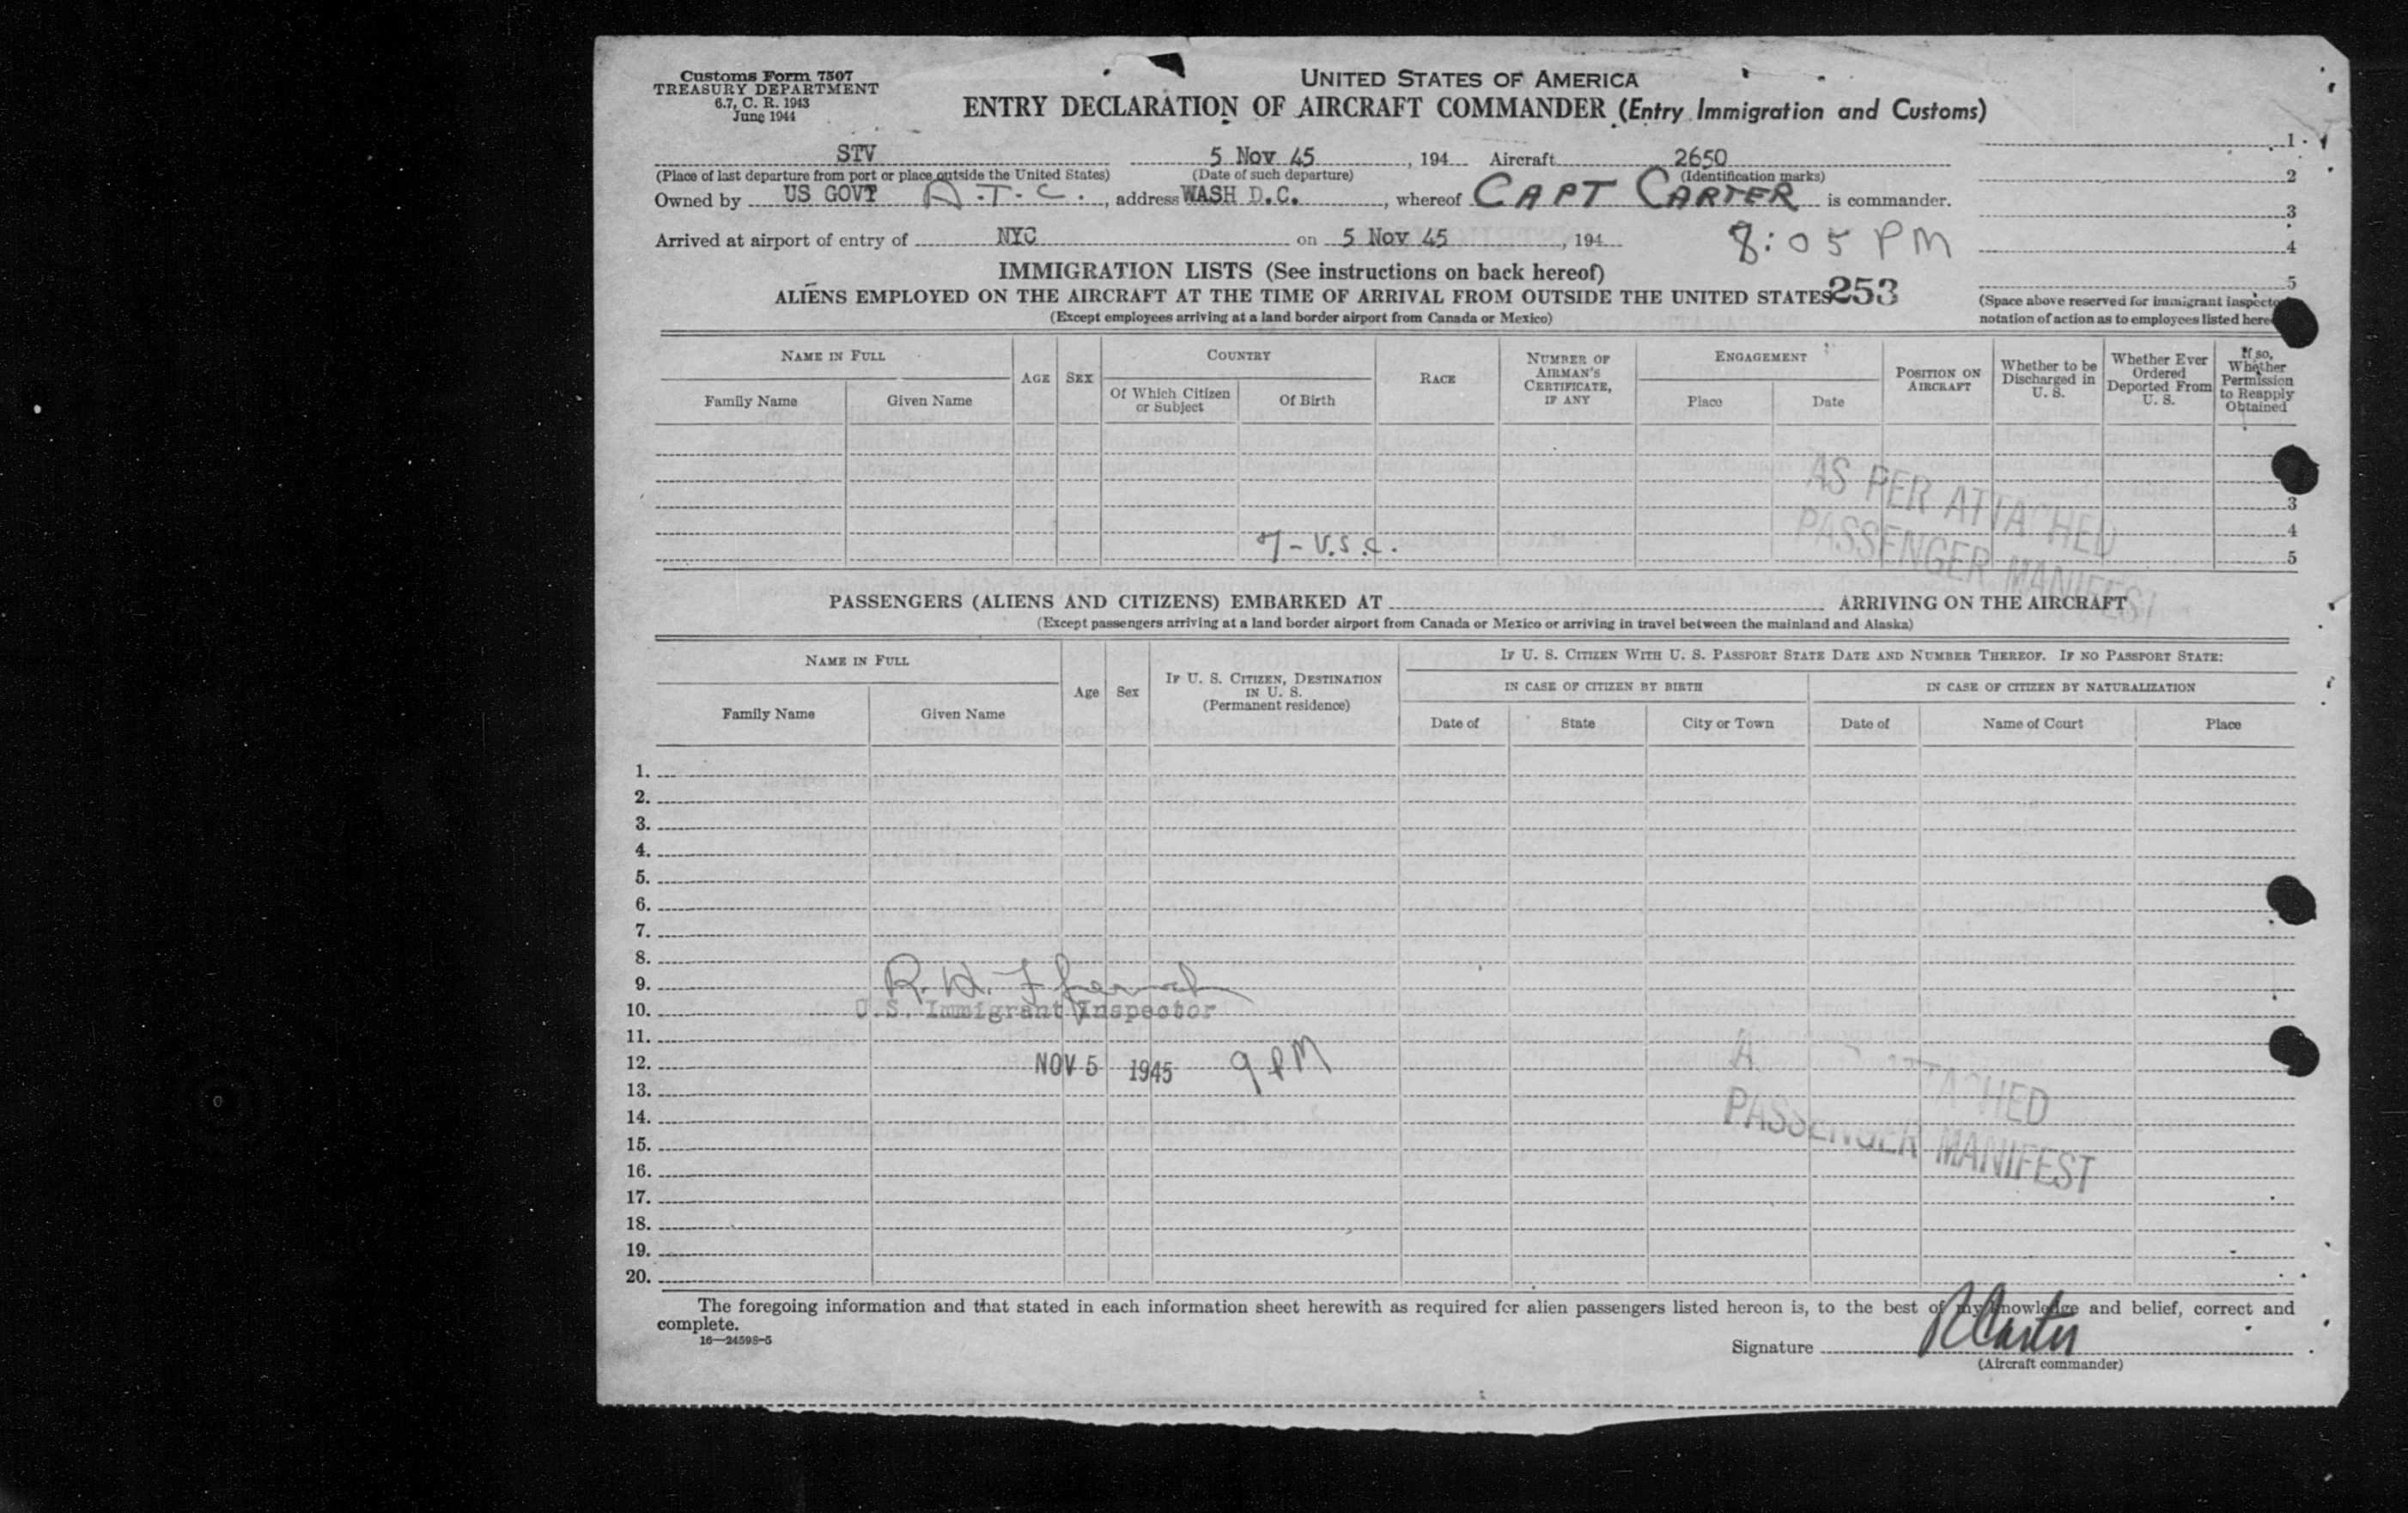 Customs Form 7507
TREASURY DEPARTMENT
6.7, C. R. 1943
June 1944
UNITED STATES OF AMERICA
ENTRY DECLARATION OF AIRCRAFT COMMANDER (Entry Immigration and Customs)
STV 5 Nov 45, 194 Aircraft 2650
(Place of last departure from port or place outside the United States) (Date of such departure) (Identification marks)
Owned by US GOVT A.T.C., address WASH D.C., whereof CAPT CARTER is commander.
Arrived at airport of entry of NYC on 5 Nov 45, 194 8:05 PM
1
2
3
4
5
(Space above reserved for immigrant
notation of action as to employees listed
IMMIGRATION LISTS (See instructions on back hereof)
ALIENS EMPLOYED ON THE AIRCRAFT AT THE TIME OF ARRIVAL FROM OUTSIDE THE UNITED STATES 253
(Except employees arriving at a land border airport from Canada or Mexico)
NAME IN FULL
Family Name Given Name
AGE SEX
COUNTRY
Of Which Citizen or Subject
Of Birth
RACE
NUMBER OF AIRMAN'S CERTIFICATE, IF ANY
ENGAGEMENT
Place Date
POSITION ON AIRCRAFT
Whether to be Discharged in U. S.
Whether Ever Ordered Deported From U. S.
If so, Whether Permission to Reapply Obtained
AS PER ATTACHED
PASSENGER MANIFEST
3
4
5
- U.S.C.
PASSENGERS (ALIENS AND CITIZENS) EMBARKED AT ARRIVING ON THE AIRCRAFT
(Except passengers arriving at a land border airport from Canada or Mexico or arriving in travel between the mainland and Alaska)
NAME IN FULL
Family Name Given Name
Age Sex
IF U. S. CITIZEN, DESTINATION IN U. S.
(Permanent residence)
IF U. S. CITIZEN WITH U. S. PASSPORT STATE DATE AND NUMBER THEREOF. IF NO PASSPORT STATE:
IN CASE OF CITIZEN BY BIRTH IN CASE OF CITIZEN BY NATURALIZATION
Date of State City or Town Date of Name of Court Place
1.
2.
3.
4.
5.
6.
7.
8.
9. R. H.
10. U.S. Immigrant Inspector
11.
12. NOV 5 1945 9 PM
13. ATTACHED
14. PASSENGER MANIFEST
15.
16.
17.
18.
19.
20.
The foregoing information and that stated in each information sheet herewith as required for alien passengers listed hereon is, to the best of my knowledge and belief, correct and
complete.
16—24598-5
Signature R Carter
(Aircraft commander)